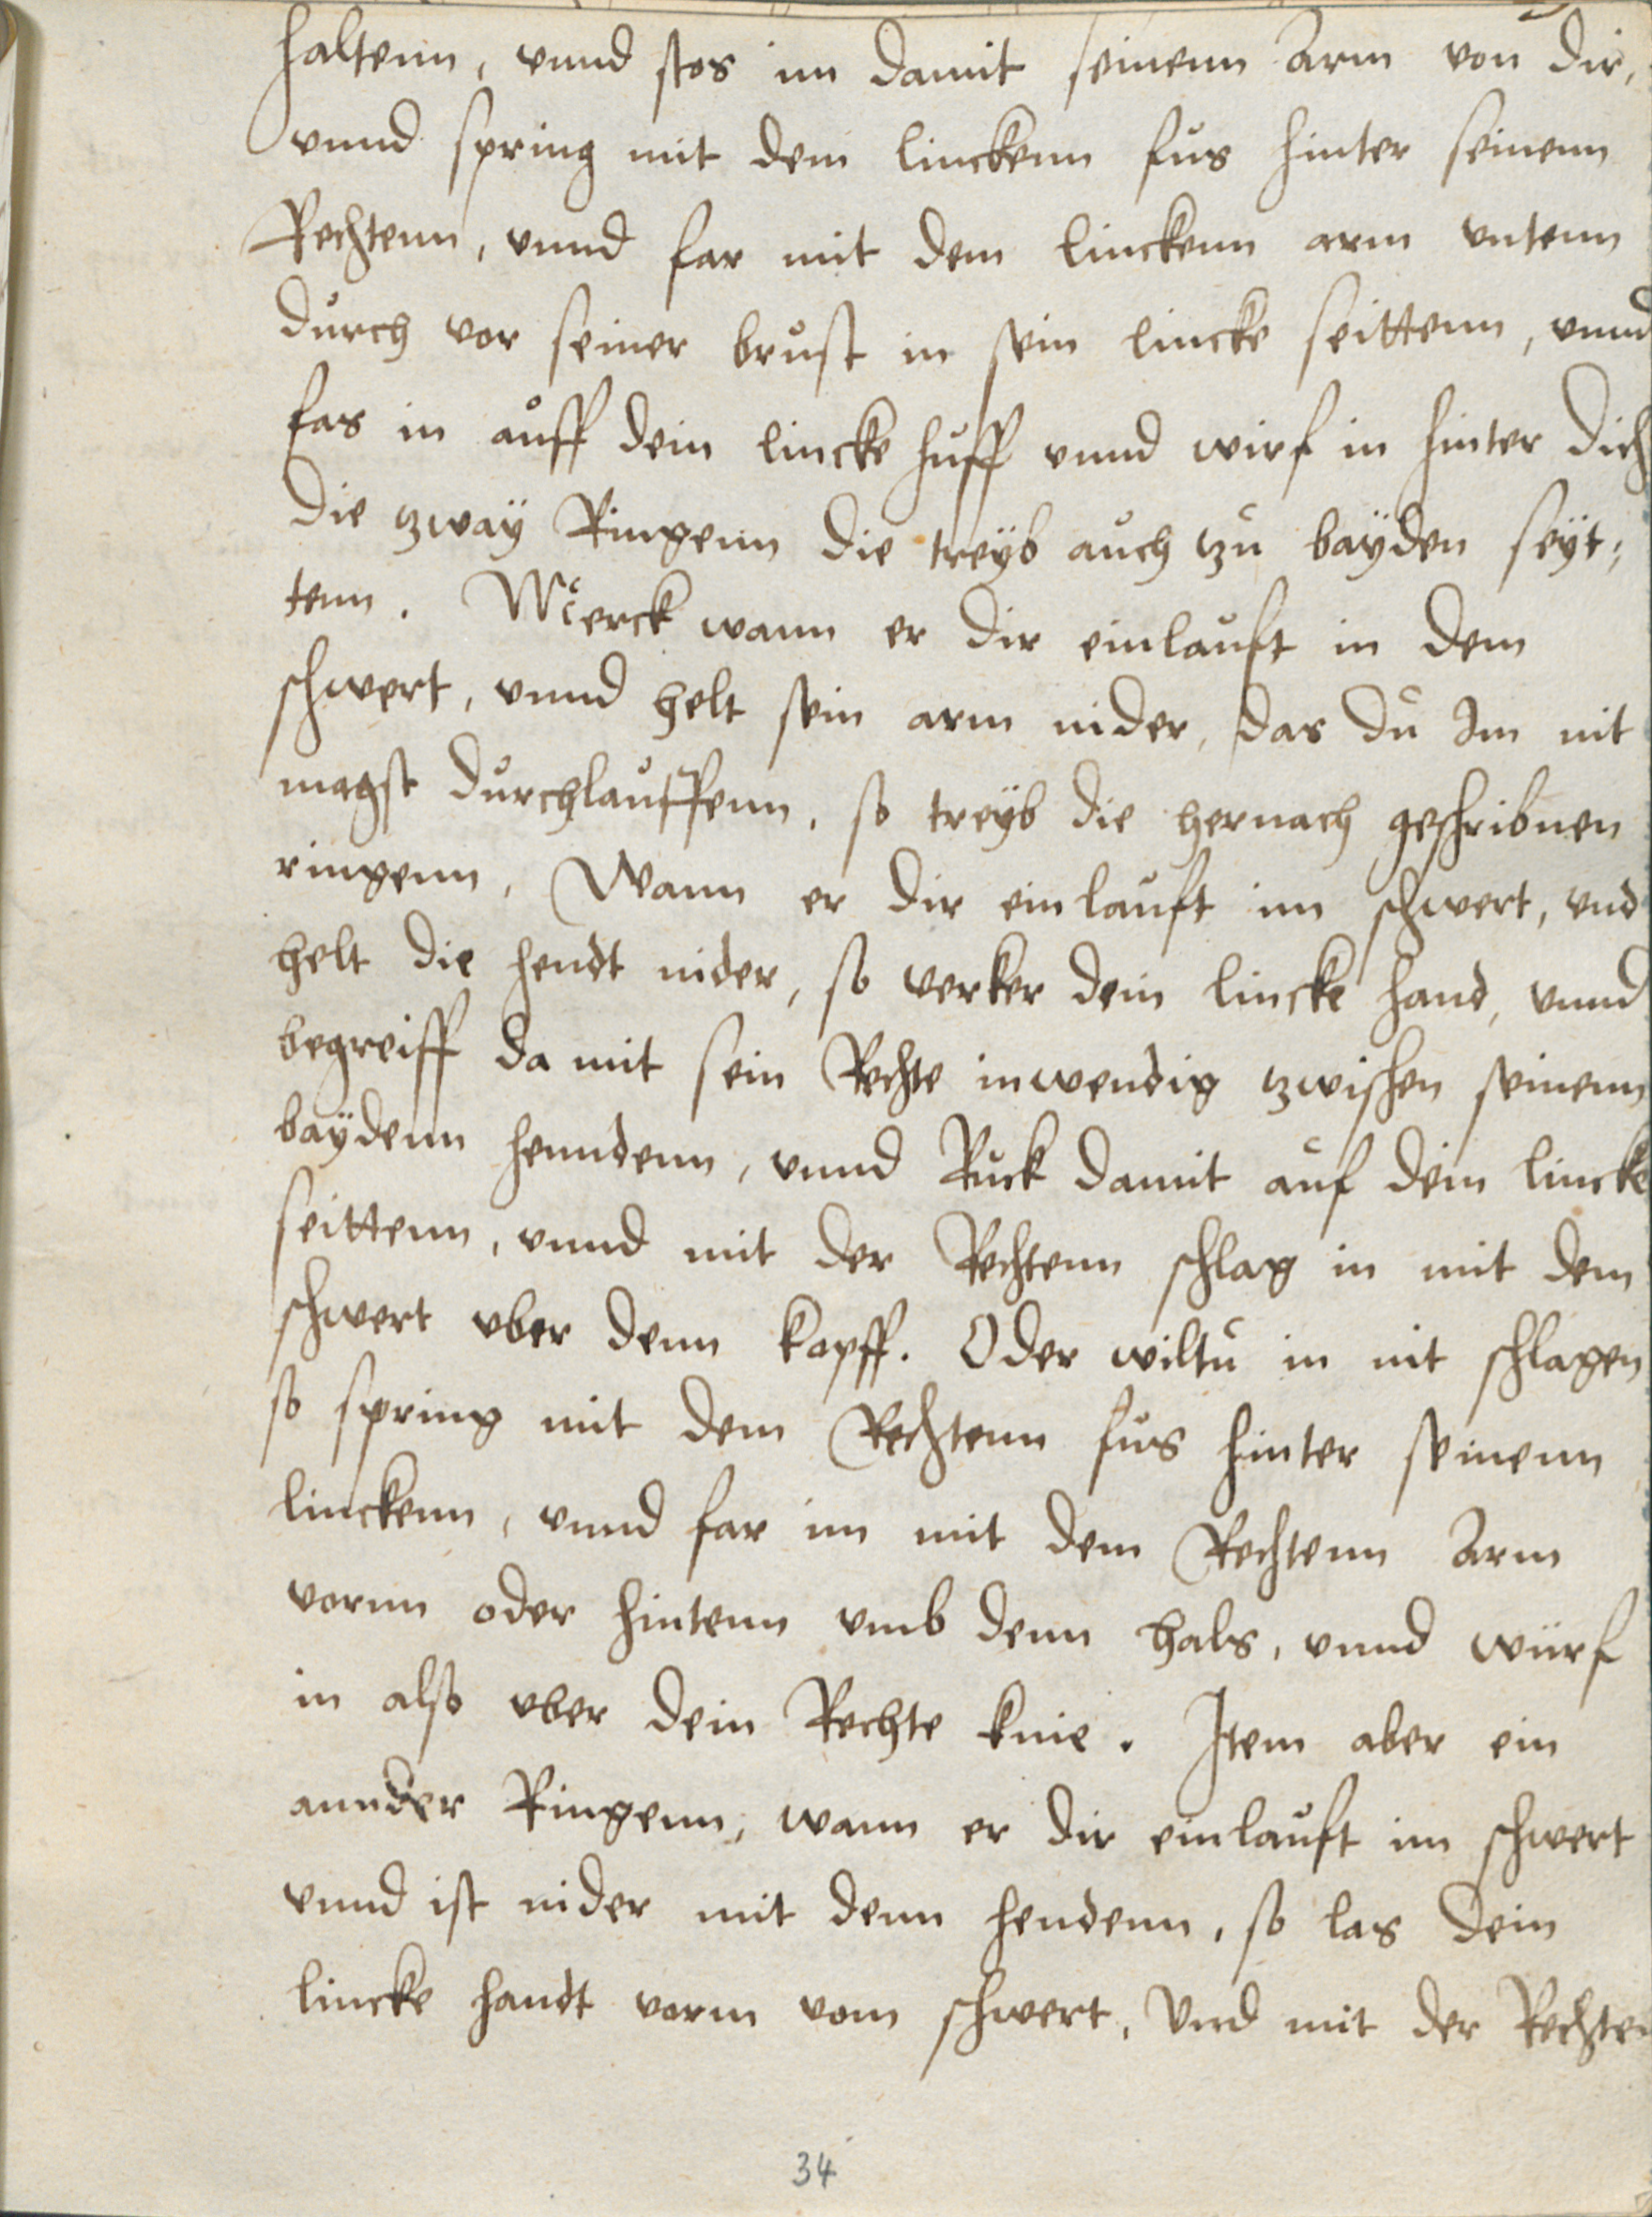 haltenn, vnnd stos im damit seinenn Arm von dir,
vnnd spring mit dem linckenn fůs hinter seinenn
Rechtenn, vnnd far mit dem linckenn arm vntenn
dürch vor seiner brůst in sein lincke seittenn, vnnd
fas in aůff dein lincke hůff vnnd wirf in hinter dich
die zwaÿ Ringenn die treÿb aůch zů baÿden seÿt,
tenn. Merck wann er dir einlaůft in dem
schwert, vnnd helt sein arm nider, das dů Im nit
magst dürchlaůffenn, so treÿb die hernach geschribnen
ringenn, Wann er dir einlaůft im schwert, vnd
helt die hendt nider, so verker dein lincke hand, vnnd
begreiff da mit sein Rechte inwendig zwischen seinenn
baÿdenn henndenn, vnnd Růck damit aůf dein lincke
seittenn, vnnd mit der Rechtenn schlag in mit dem
schwert vber denn kopff. Oder wiltů in nit schlagen
so spring mit dem Rechtenn fůs hinter seinenn
linckenn, vnnd far im mit dem Rechtenn Arm
vornn oder hintenn vmb denn hals, vnnd würf
in also vber dein Rechte knie. Item aber ein
annder Ringenn, wann er dir einlaůft im schwert
vnnd ist nider mit denn hendenn, so las dein
lincke handt varnn vom schwert, Vnd mit der Rechten
34